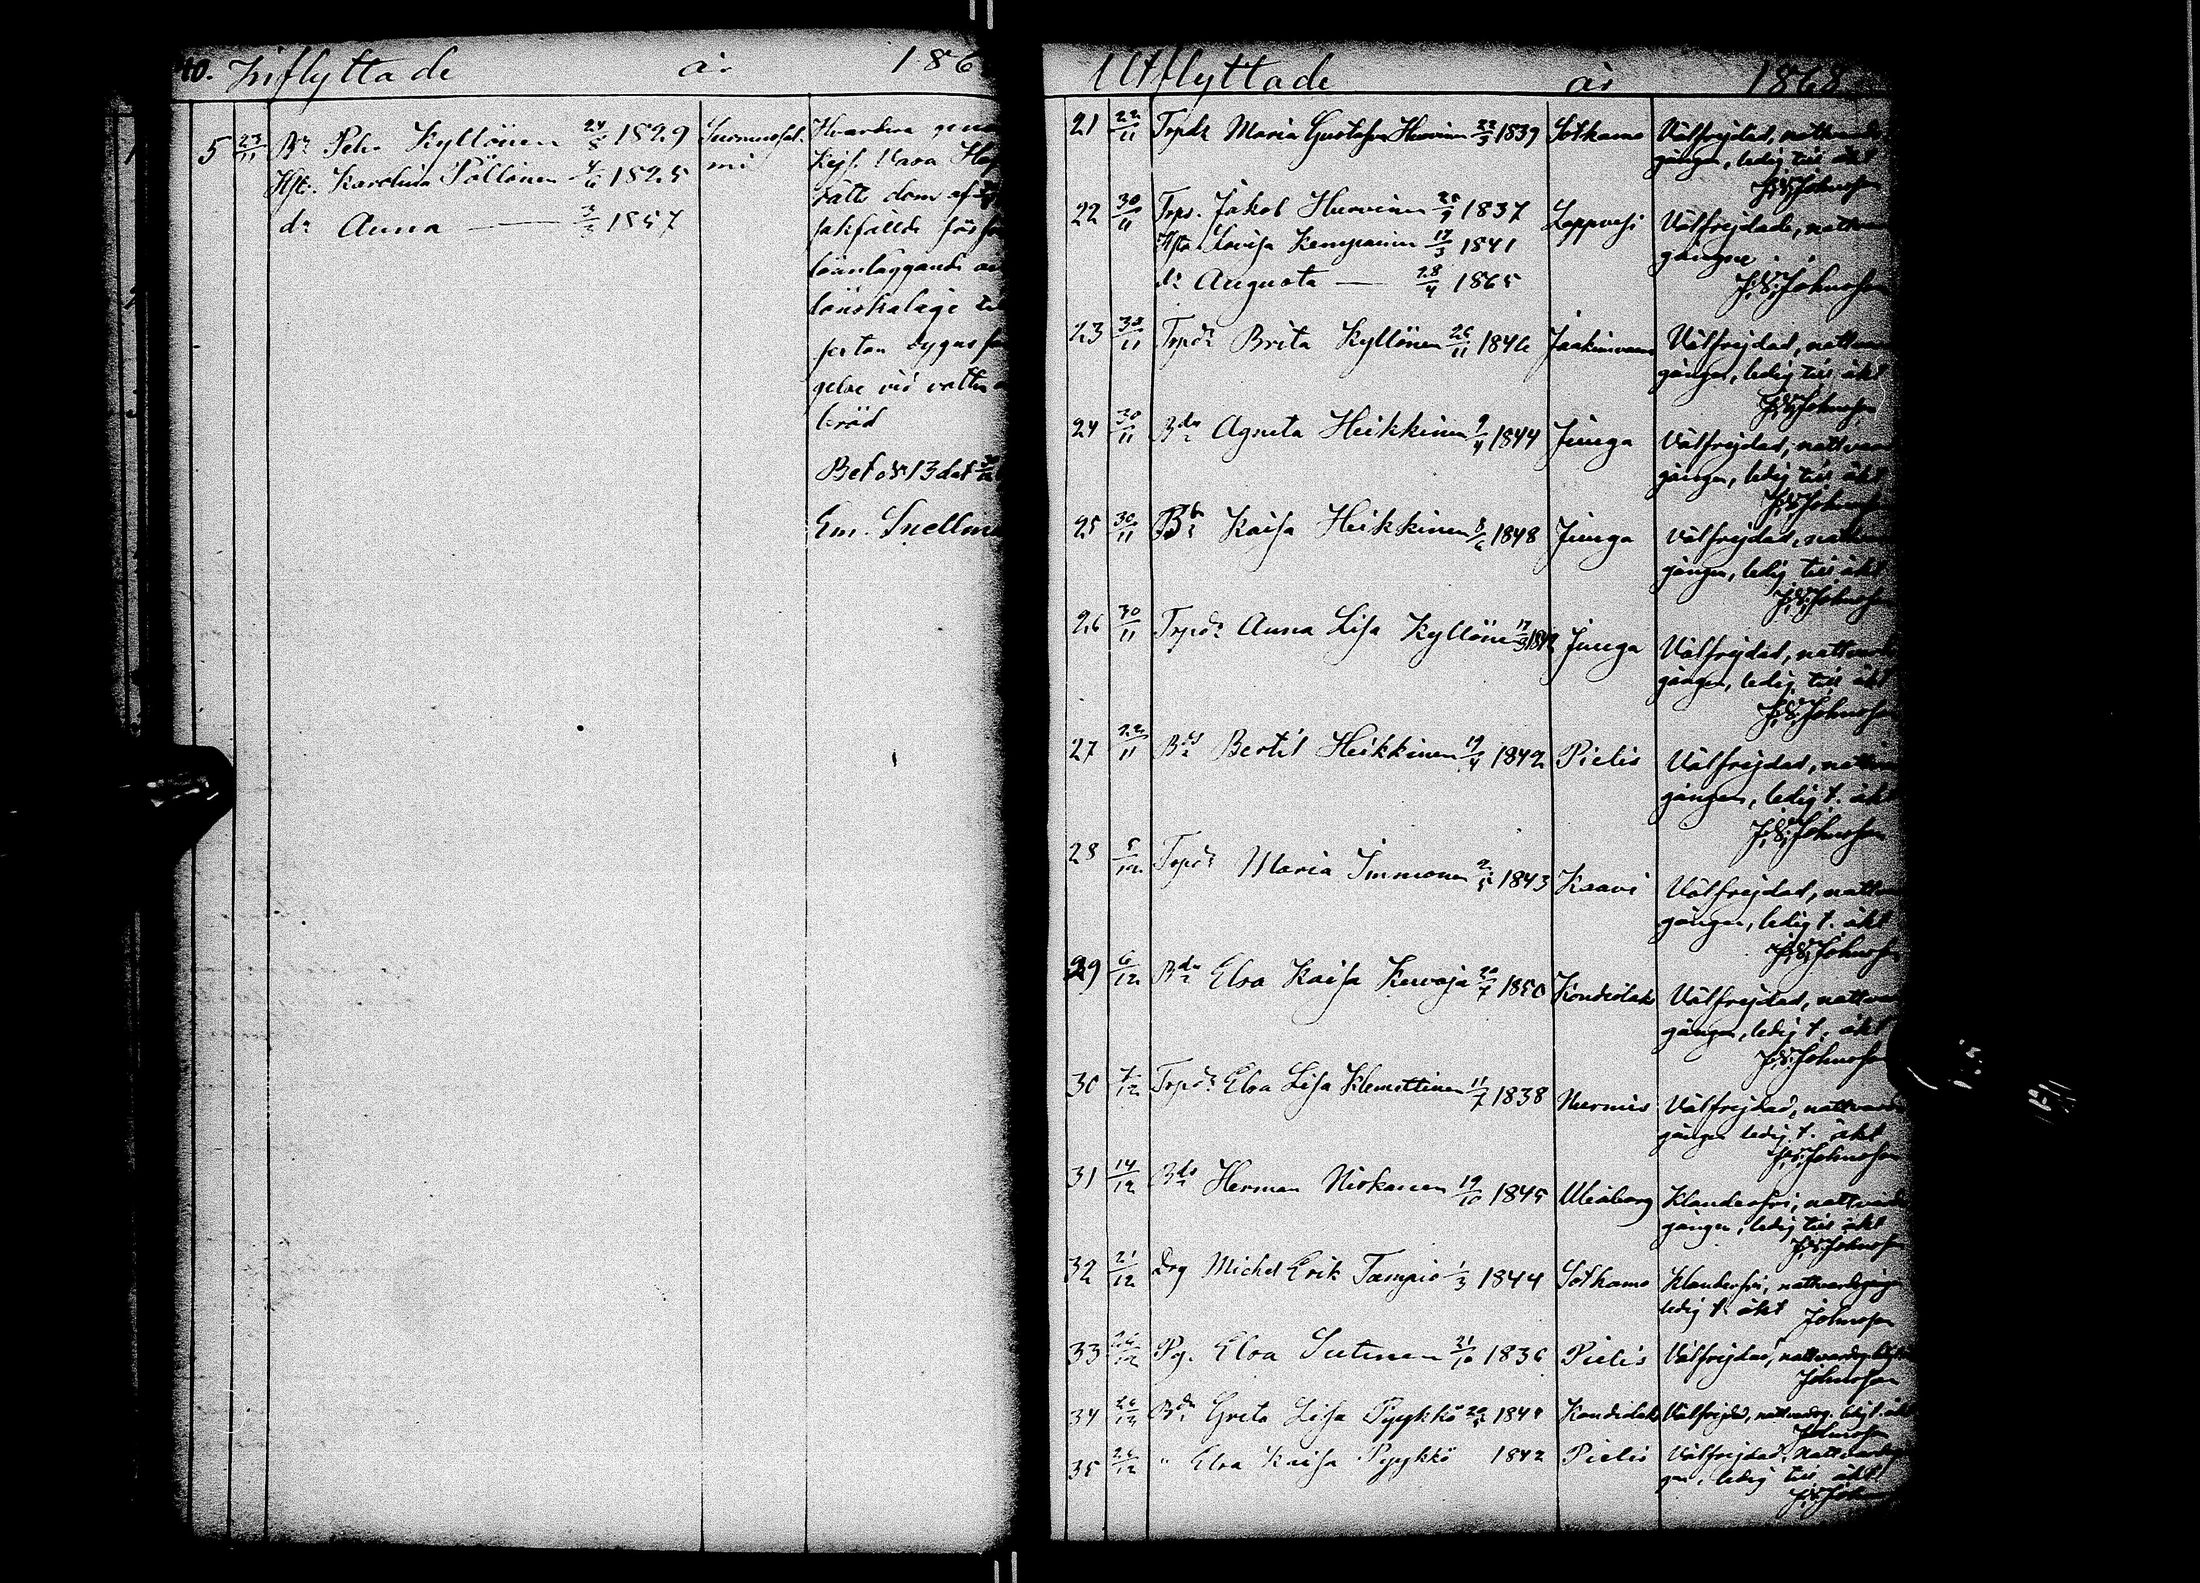 40. Inflyttade år 186
5 23/11 Br Petr Kyllönen 24/8 1829 Suomussal-
mi
Hst. Karolina Pöllönen 4/6 1825
dr Anna — 3/3 1857
Hvardera geno
Kejs. Vasa Hof
rätts dom af
sakfällde för
lönnläggande
lönskaläge
gelse vid vatten
bröd
Bet. Nr 13 dat
Em. Snellma
Utflyttade år 1868
21 22/11 Trpdr Maria Gustafva Hurvinen 22/3 1839 Sotkamo Välfrejdad, nattvards
gången, ledig till äkt
J.S. Johnsson
22 30/11 Trps. Jakob Hurvinen 25/9 1837 Lappvesi Välfrejdade, nattvar
gångne
Hsta Lovisa Kemppainen 17/3 1841
dr Augusta — 28/4 1865 J.S. Johnsson
23 30/11 Trpdr Brita Kyllönen 26/11 1846 Jaakimvaara Välfrejdad, nattvar
gången, ledig till äkt
J.S. Johnsson
24 30/11 Bdr Agneta Heikkinen 9/4 1844 Juuga Välfrejdad, nattvar
gången, ledig till äkt
J.S. Johnsson
25 30/11 Br Kaisa Heikkinen 8/6 1848 Juuga Välfrejdad, nattvar
gången, ledig till äkt
J.S. Johnsson
26 30/11 Trpdr Anna Lisa Kyllönen Juuga Välfrejdad, nattvard
gången, ledig till äkt
J.S. Johnsson
27 22/11 Bds Bertil Heikkinen 19/4 1842 Pielis Välfrejdad, nattvar
gången, ledig t. äkt
J.S. Johnsson
28 5/12 Trpdr Maria Immonen 2/5 1843 Kaavi Välfrejdad, nattvar
gången, ledig t. äkt
J.S. Johnsson
29 6/12 Bdr Elsa Kaisa Kervaja 20/7 1850 Kondiolaks Välfrejdad, nattvar
gången, ledig t. äkt
J.S. Johnsson
30 7/12 Trpdr Elsa Lisa Klemettinen 11/7 1838 Nurmis Välfrejdad, nattvards
gången ledig t. äkt
J.S. Johnsson
31 14/12 Bds Herman Niskanen 19/10 1845 Uleåborg Klanderfri, nattvards
gången, ledig till äkt
J.S. Johnsson
32 21/12 Drg Michel Erik Tampio 1/3 1844 Sotkamo Klanderfri, nattvardsgången
ledig t. äkt Johnsson
33 26/12 Pg. Elsa Sutinen 21/10 1836 Pielis Välfrejdad, nattvardsg.
Johnsson
34 26/12 Bdr Greta Lisa Pyykkö 1844 Kondiolaks Välfrejdad, nattvardsg. ledig t. äkt
Johnsson
35 26/12 " Elsa Kaisa Pyykkö 1842 Pielis Välfrejdad, nattvards
gen, ledig till äkt
J.S. John